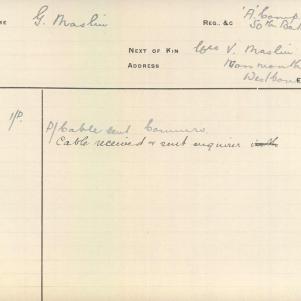 ME G. Maslin REG., &C 'A' Comp
50th Bat
NEXT OF KIN V. Maslin
ADDRESS Monmouth
E
1/P.
P/Cable sent
Cable received & sent enquirer